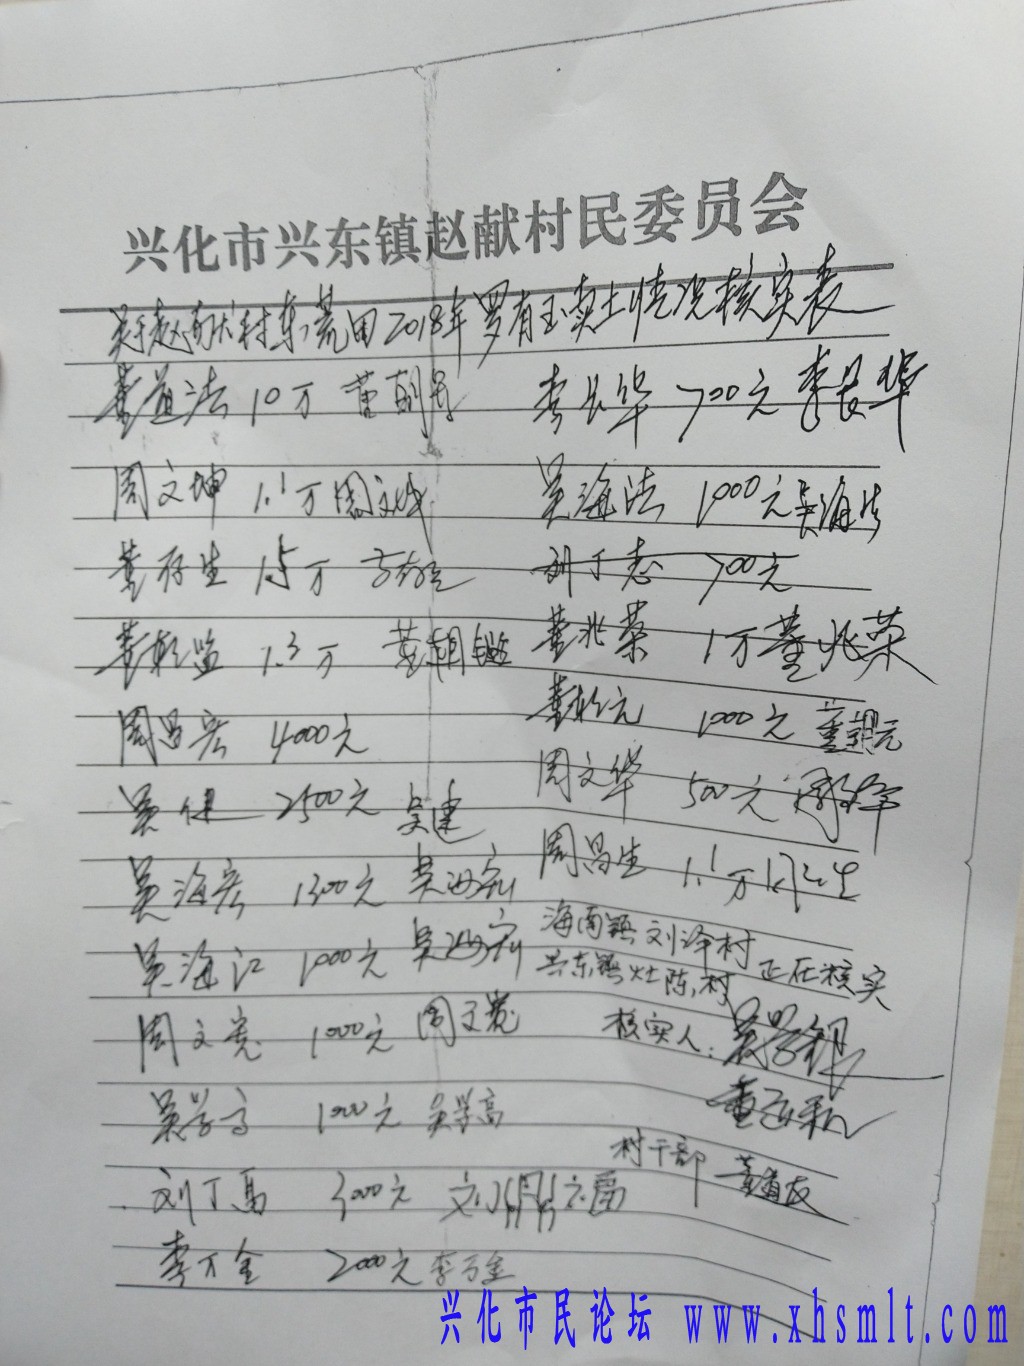 兴化市兴东镇赵献村民委员会
关于赵献村东荒田2018年罗有玉卖土情况核实表
董道法 10万
李长华 700元 李长华
周文坤 1.1万 周文坤
吴海法 1000元 吴海法
董存生 1.5万
刘丁志 700元
董朝监 1.3万 董朝鑑
董兆荣 1万 董兆荣
周昌宏 4000元
董朝元 1000元 董朝元
吴健 2500元 吴建
周文华 500元 周文华
吴海宏 1300元 吴海宏
周昌生 1.1万
吴海江 1000元 吴海宏
海南镇刘泽村
兴东镇灶陈村 正在核实
周文宽 1000元 周文宽
核实人:
吴学高 1000元 吴学高
村干部
刘丁高 3000元
李万金 2000元 李万金
兴化市民论坛 www.xhsmlt.com